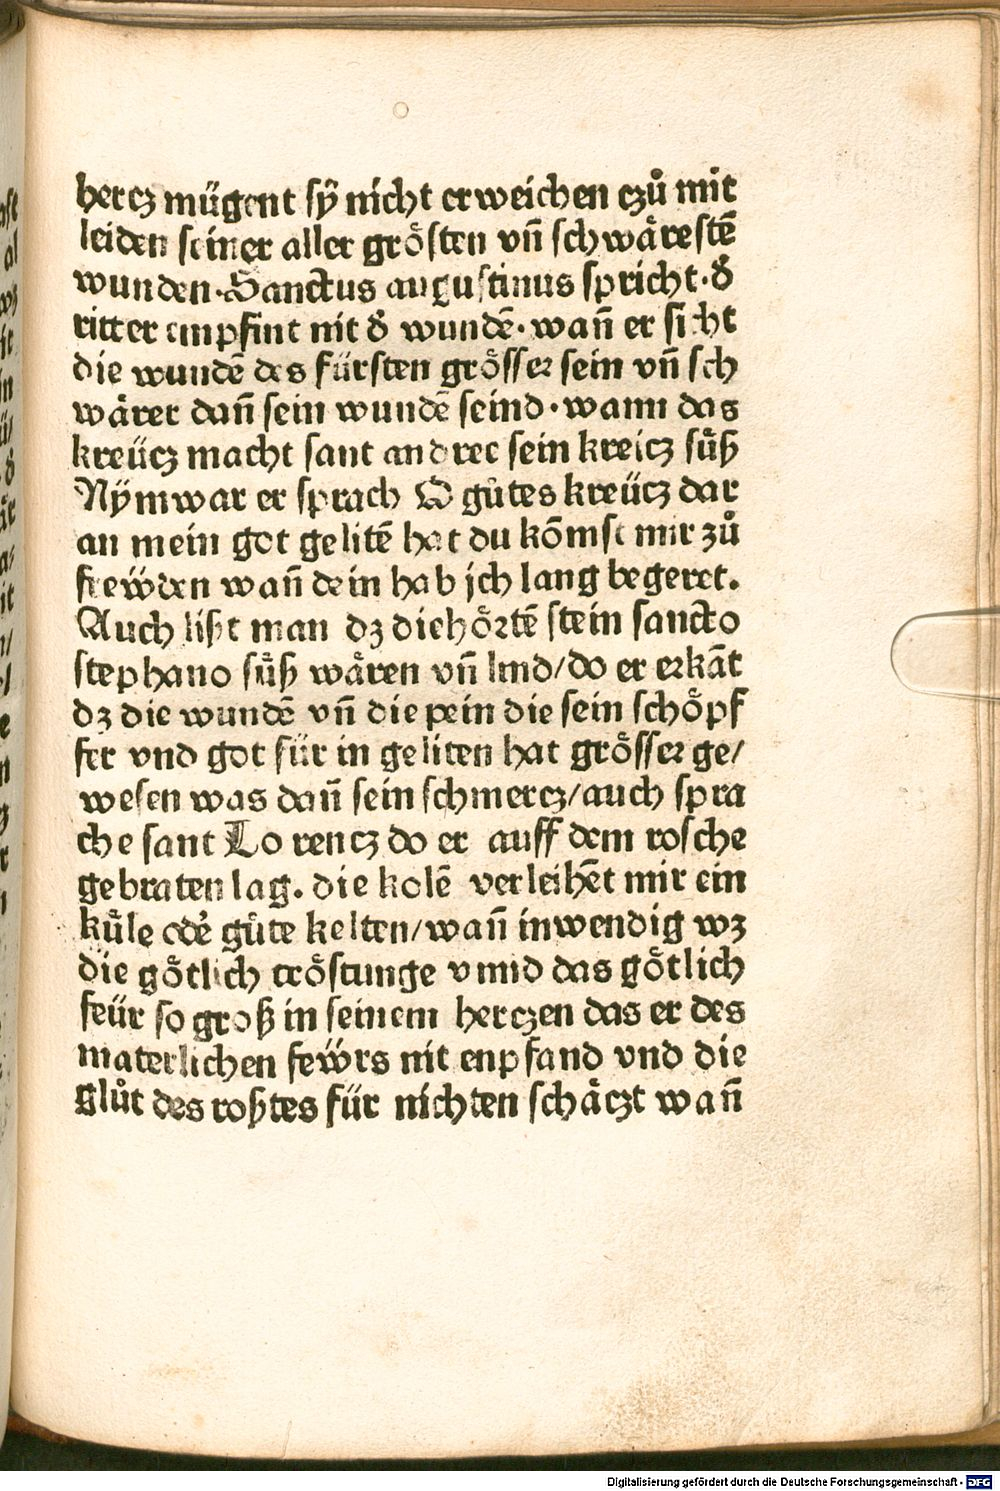 hercz mügent sÿ nicht erweichen czů mit
leiden seiner aller grösten vn̄ schwärestē
wunden·Sanctus augustinus spricht·d̄
ritter empfint nit d̄ wundē·wan̄ er sicht
die wundē des fürsten grösser sein vn̄ sch
wärer dan̄ sein wundē seind·wann das
kreücz macht sant andree sein kreicz süß
Nÿm war er sprach O gůtes kreücz dar
an mein got gelitē hat du kōmst mir zů
freẅden wan̄ dein hab jch lang begeret.
Auch lißt man dz die hörtē stein sancto
stephano süß wären vn̄ lind/do er erkāt
dz die wundē vn̄ die pein die sein schöpf
fer vnd got für in geliten hat grösser ge/
wesen was dan̄ sein schmercz/auch spra
che sant Lorencz do er auff dem rosche
gebraten lag. die kolē verleihēt mir ein
küle odē güte kelten/wan̄ inwendig wz
die götlich tröstunge vnnd das götlich
feür so groß in seinem herczen das er des
materlichen feẅrs nit enpfand vnd die
glůt des roßtes für nichten schäczt wan̄
Digitalisierung gefördert durch die Deutsche Forschungsgemeinschaft - DFG